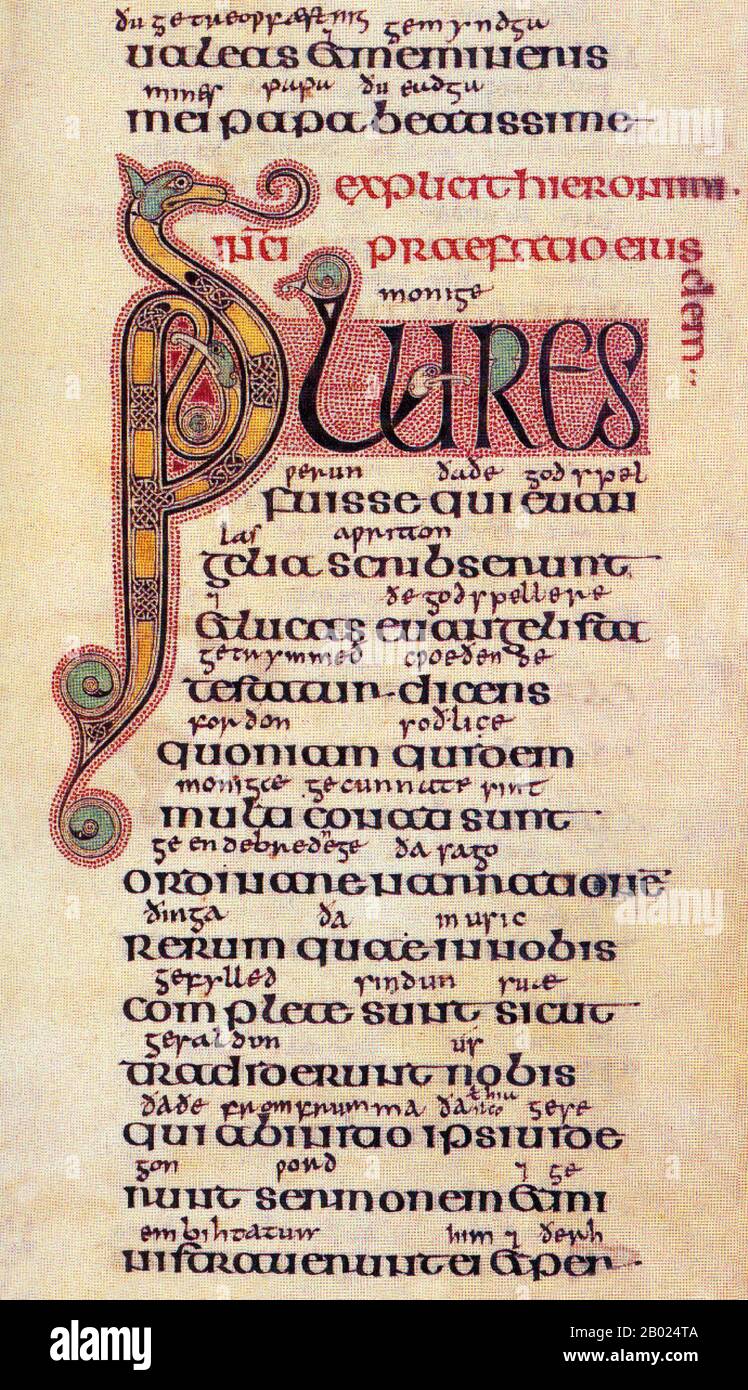 ðu getreoƿfæstnig ⁊ gemyndgu
ualeas & memineris
mines papa ðu eadga
mei papa beatissime
explicit hieronimi
praefatio eius
dem
monige
PLURES
ƿerun ðaðe godspel
fuisse qui euan
las aƿriton
gelia scribserunt
⁊ ðe godspellere
& lucas euangelista
getrymmed cƿoeðende
testatur dicens
forðon soðlice
quoniam quidem
monigæ gecunnate sint
multi conati sunt
ge endebrednege ða sago
ordinare narrationē
ðinga ða in usic
rerum quae in nobis
gefylled sindun suæ
complete sunt sicut
gesaldon us
tradiderunt nobis
ðaðe fromfrumma ða ilco gese
qui ab initio ipsi uide
gon ƿord ⁊ ge
runt sermonem & mi
embihtatun him ⁊ ðerh
nistrauerunt ei & per
alamy
Image ID: 2B024TA
www.alamy.com